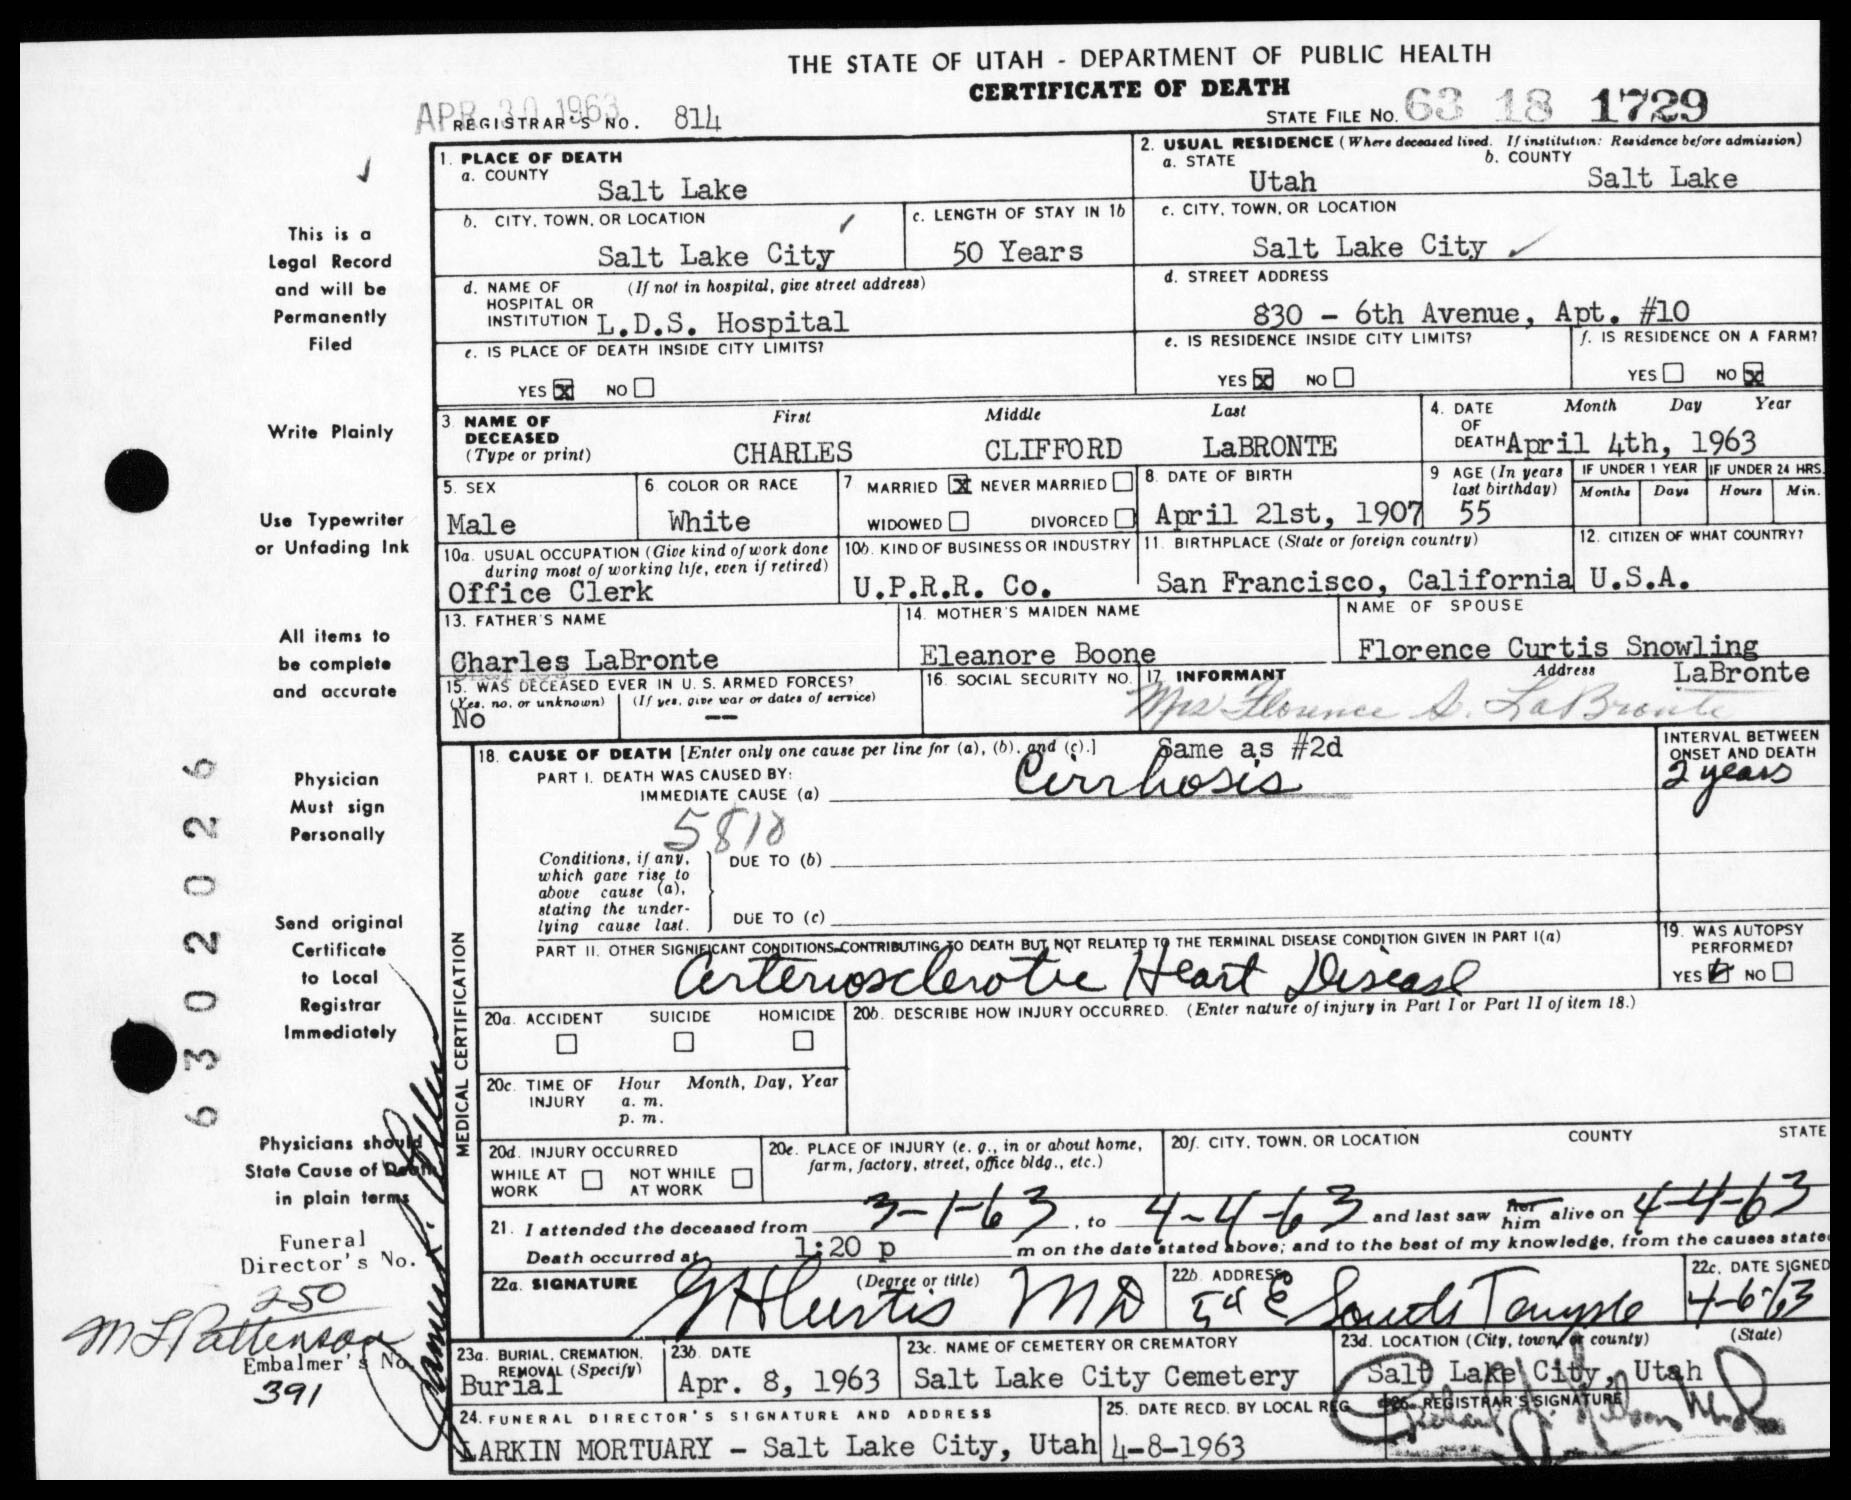 THE STATE OF UTAH - DEPARTMENT OF PUBLIC HEALTH
CERTIFICATE OF DEATH
APR 30 1963
REGISTRAR'S NO. 814
STATE FILE NO. 63 18 1729
This is a
Legal Record
and will be
Permanently
Filed
Write Plainly
Use Typewriter
or Unfading Ink
All items to
be complete
and accurate
Physician
Must sign
Personally
Send original
Certificate
to Local
Registrar
Immediately
Physicians should
State Cause of Death
in plain terms
Funeral
Director's No.
250
M L Pattenson
Embalmer's No.
391
6302026
1. PLACE OF DEATH
a. COUNTY
Salt Lake
2. USUAL RESIDENCE (Where deceased lived. If institution: Residence before admission)
a. STATE
Utah
b. COUNTY
Salt Lake
b. CITY, TOWN, OR LOCATION
Salt Lake City
c. LENGTH OF STAY IN 1b
50 Years
c. CITY, TOWN, OR LOCATION
Salt Lake City
d. NAME OF (If not in hospital, give street address)
HOSPITAL OR
INSTITUTION L.D.S. Hospital
d. STREET ADDRESS
830 - 6th Avenue, Apt. #10
e. IS PLACE OF DEATH INSIDE CITY LIMITS?
YES X NO
e. IS RESIDENCE INSIDE CITY LIMITS?
YES X NO
f. IS RESIDENCE ON A FARM?
YES NO X
3 NAME OF
DECEASED
(Type or print)
First Middle Last
CHARLES CLIFFORD LaBRONTE
4. DATE OF DEATH Month Day Year
April 4th, 1963
5. SEX
Male
6. COLOR OR RACE
White
7 MARRIED X NEVER MARRIED
WIDOWED DIVORCED
8. DATE OF BIRTH
April 21st, 1907
9 AGE (In years
last birthday)
55
IF UNDER 1 YEAR
Months Days
IF UNDER 24 HRS.
Hours Min.
10a. USUAL OCCUPATION (Give kind of work done
during most of working life, even if retired)
Office Clerk
10b. KIND OF BUSINESS OR INDUSTRY
U.P.R.R. Co.
11. BIRTHPLACE (State or foreign country)
San Francisco, California
12. CITIZEN OF WHAT COUNTRY?
U.S.A.
13. FATHER'S NAME
Charles LaBronte
14. MOTHER'S MAIDEN NAME
Eleanore Boone
NAME OF SPOUSE
Florence Curtis Snowling
LaBronte
15. WAS DECEASED EVER IN U. S. ARMED FORCES?
(Yes, no, or unknown) (If yes, give war or dates of service)
No --
16. SOCIAL SECURITY NO.
17. INFORMANT Address
Mrs Florence S. LaBronte
Same as #2d
MEDICAL CERTIFICATION
18. CAUSE OF DEATH [Enter only one cause per line for (a), (b), and (c).]
PART I. DEATH WAS CAUSED BY:
IMMEDIATE CAUSE (a) Cirrhosis
INTERVAL BETWEEN
ONSET AND DEATH
2 years
5810
Conditions, if any,
which gave rise to
above cause (a),
stating the under-
lying cause last.
DUE TO (b)
DUE TO (c)
PART II. OTHER SIGNIFICANT CONDITIONS CONTRIBUTING TO DEATH BUT NOT RELATED TO THE TERMINAL DISEASE CONDITION GIVEN IN PART I(a)
Arteriosclerotic Heart Disease
19. WAS AUTOPSY
PERFORMED?
YES NO
20a. ACCIDENT SUICIDE HOMICIDE
20b. DESCRIBE HOW INJURY OCCURRED. (Enter nature of injury in Part I or Part II of item 18.)
20c. TIME OF
INJURY
Hour Month, Day, Year
a. m.
p. m.
20d. INJURY OCCURRED
WHILE AT
WORK
NOT WHILE
AT WORK
20e. PLACE OF INJURY (e. g., in or about home,
farm, factory, street, office bldg., etc.)
20f. CITY, TOWN, OR LOCATION COUNTY STATE
21. I attended the deceased from 3-1-63, to 4-4-63 and last saw her him alive on 4-4-63
Death occurred at 1:20 p m on the date stated above; and to the best of my knowledge, from the causes state
22a. SIGNATURE (Degree or title)
G H Curtis MD
22b. ADDRESS
E South Temple
22c. DATE SIGNED
4-6-63
23a. BURIAL, CREMATION,
REMOVAL (Specify)
Burial
23b. DATE
Apr. 8, 1963
23c. NAME OF CEMETERY OR CREMATORY
Salt Lake City Cemetery
23d. LOCATION (City, town, or county) (State)
Salt Lake City, Utah
24. FUNERAL DIRECTOR'S SIGNATURE AND ADDRESS
LARKIN MORTUARY - Salt Lake City, Utah
25. DATE RECD. BY LOCAL REG.
4-8-1963
26. REGISTRAR'S SIGNATURE